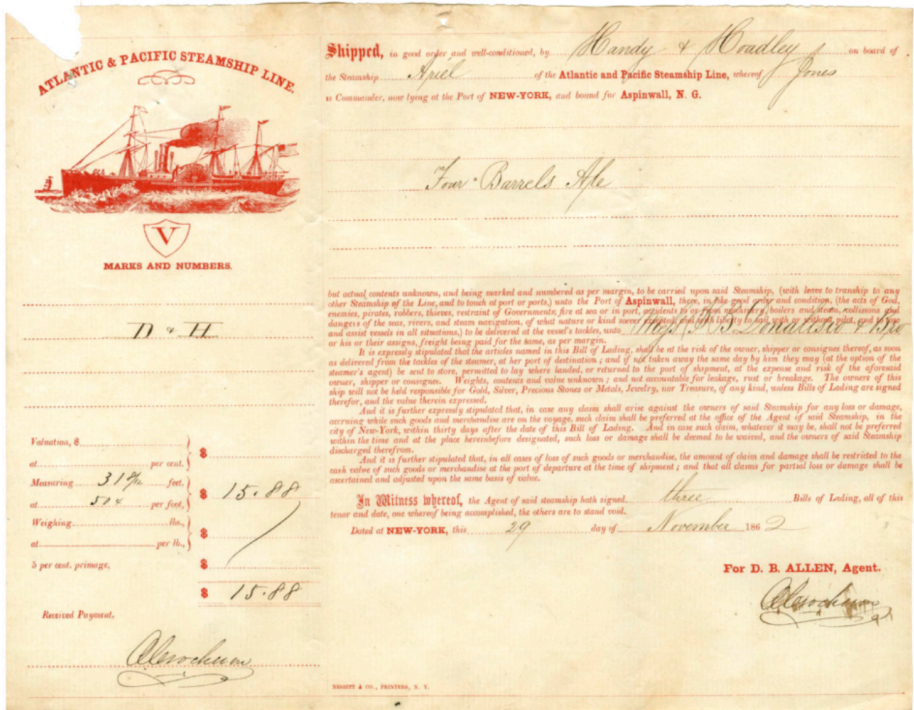 ATLANTIC & PACIFIC STEAMSHIP LINE.
V
MARKS AND NUMBERS.
D & H
Valuation, $
at per cent. $
Measuring 31 9/12 feet.
at 50¢ per foot, $ 15.88
Weighing lbs.,
at per lb., $
5 per cent. primage, $
$ 15.88
Received Payment,
Shipped, in good order and well-conditioned, by Handy & Hoadley on board of
the Steamship Ariel of the Atlantic and Pacific Steamship Line, whereof Jones
is Commander, now lying at the Port of NEW-YORK, and bound for Aspinwall, N. G.
Four Barrels Ale
but actual contents unknown, and being marked and numbered as per margin, to be carried upon said Steamship, (with leave to tranship to any
other Steamship of the Line, and to touch at port or ports,) unto the Port of Aspinwall, there, in like good order and condition, (the acts of God,
enemies, pirates, robbers, thieves, restraint of Governments, fire at sea or in port, accidents to or from machinery, boilers and steam, collisions and
dangers of the seas, rivers, and steam navigation, of what nature or kind soever
and assist vessels in all situations,) to be delivered at the vessel's tackles, unto
or his or their assigns, freight being paid for the same, as per margin.
It is expressly stipulated that the articles named in this Bill of Lading, shall be at the risk of the owner, shipper or consignee thereof, as soon
as delivered from the tackles of the steamer, at her port of destination; and if not taken away the same day by him they may (at the option of the
steamer's agent) be sent to store, permitted to lay where landed, or returned to the port of shipment, at the expense and risk of the aforesaid
owner, shipper or consignee. Weights, contents and value unknown; and not accountable for leakage, rust or breakage. The owners of this
ship will not be held responsible for Gold, Silver, Precious Stones or Metals, Jewelry, nor Treasure, of any kind, unless Bills of Lading are signed
therefor, and the value therein expressed.
And it is further expressly stipulated that, in case any claim shall arise against the owners of said Steamship for any loss or damage,
accruing while such goods and merchandise are on the voyage, such claim shall be preferred at the office of the Agent of said Steamship, in the
city of New-York, within thirty days after the date of this Bill of Lading. And in case such claim, whatever it may be, shall not be preferred
within the time and at the place hereinbefore designated, such loss or damage shall be deemed to be waived, and the owners of said Steamship
discharged therefrom.
And it is further stipulated that, in all cases of loss of such goods or merchandise, the amount of claim and damage shall be restricted to the
cash value of such goods or merchandise at the port of departure at the time of shipment; and that all claims for partial loss or damage shall be
ascertained and adjusted upon the same basis of value.
In Witness whereof, the Agent of said steamship hath signed three Bills of Lading, all of this
tenor and date, one whereof being accomplished, the others are to stand void.
Dated at NEW-YORK, this 29 day of November 1862
For D. B. ALLEN, Agent.
NESBITT & CO., PRINTERS, N. Y.